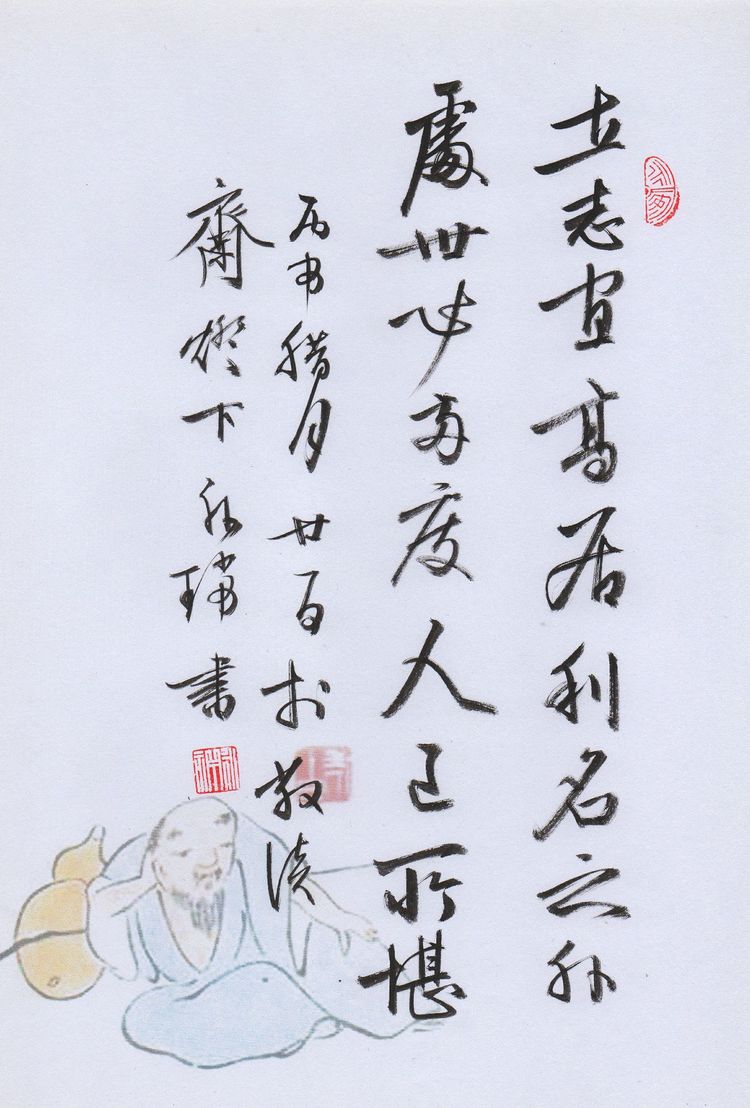 立志宜高居利名之外
處世必两度人己所堪
丙申腊月廿一日於
齋燈下永瑞書